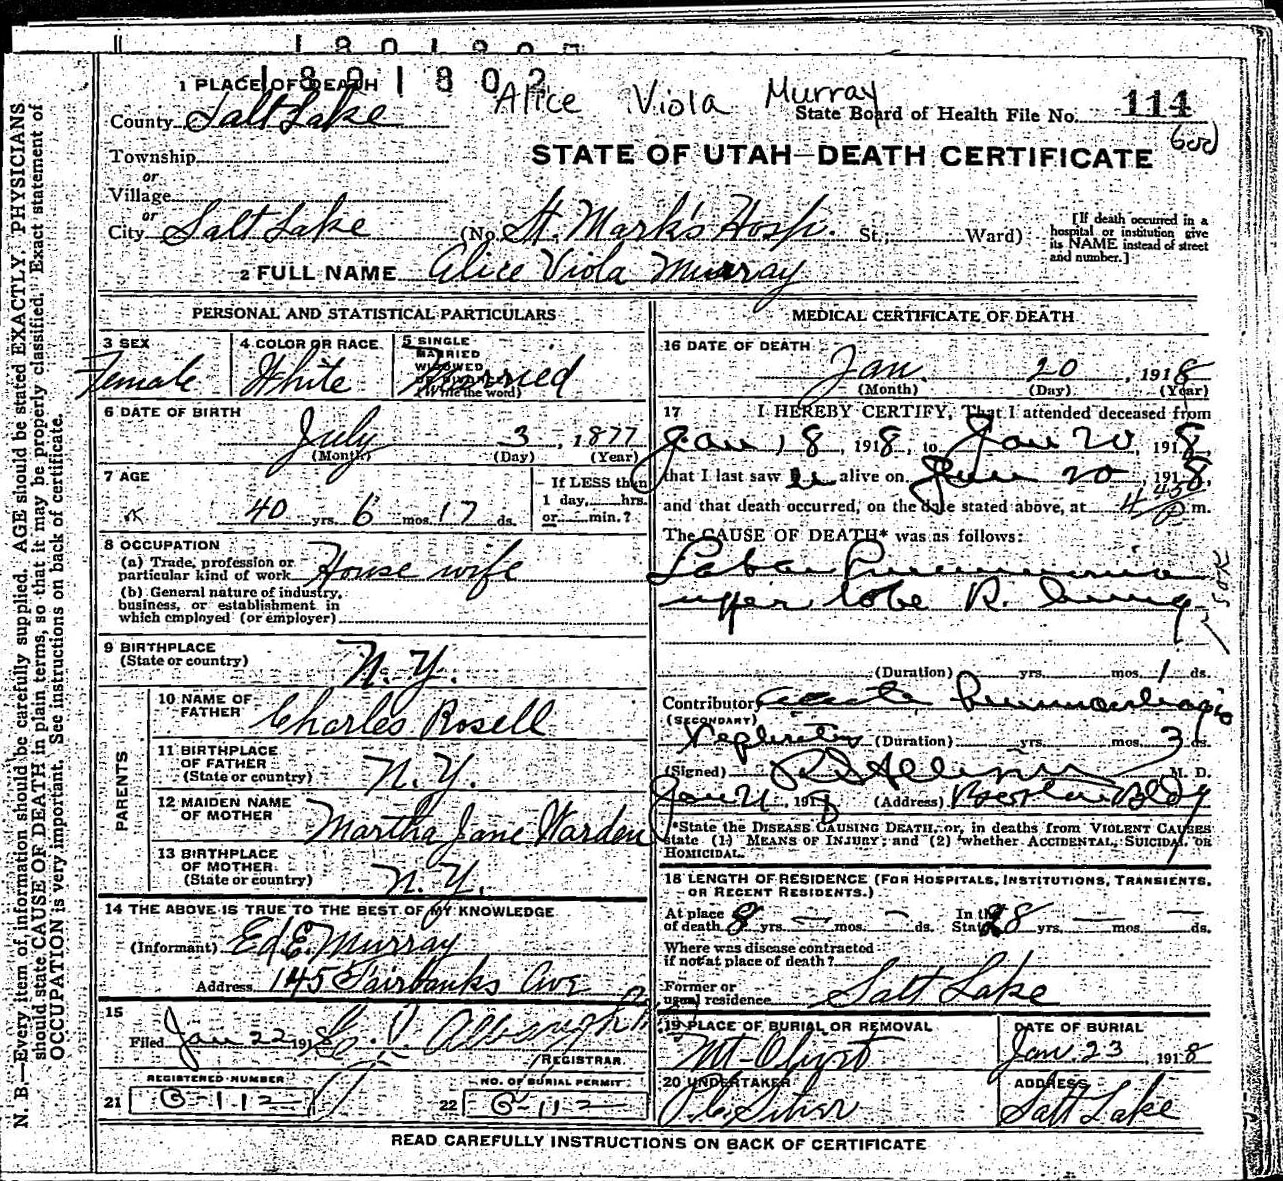 1801802
Alice Viola Murray
1 PLACE OF DEATH
County Salt Lake
State Board of Health File No. 114
Township
or
Village
or
City Salt Lake (No. St. Mark's Hosp. St.; Ward)
STATE OF UTAH—DEATH CERTIFICATE
[If death occurred in a
hospital or institution give
its NAME instead of street
and number.]
2 FULL NAME Alice Viola Murray
PERSONAL AND STATISTICAL PARTICULARS
3 SEX
Female
4 COLOR OR RACE
White
5 SINGLE
MARRIED
WIDOWED
OR DIVORCED
(Write the word)
Married
6 DATE OF BIRTH
July 3, 1877
(Month) (Day) (Year)
7 AGE
40 yrs. 6 mos. 17 ds.
If LESS than
1 day, hrs.
or min.?
8 OCCUPATION
(a) Trade, profession or
particular kind of work House wife
(b) General nature of industry,
business, or establishment in
which employed (or employer)
9 BIRTHPLACE
(State or country) N.Y.
PARENTS
10 NAME OF
FATHER Charles Rosell
11 BIRTHPLACE
OF FATHER
(State or country) N.Y.
12 MAIDEN NAME
OF MOTHER Martha Jane Warden
13 BIRTHPLACE
OF MOTHER
(State or country) N.Y.
14 THE ABOVE IS TRUE TO THE BEST OF MY KNOWLEDGE
(Informant) Ed E. Murray
Address 145 Fairbanks Ave
15
Filed Jan 22 1918
REGISTRAR
REGISTERED NUMBER
21 G-112
NO. OF BURIAL PERMIT
22 G-112
MEDICAL CERTIFICATE OF DEATH
16 DATE OF DEATH
Jan. 20, 1918
(Month) (Day) (Year)
17 I HEREBY CERTIFY, That I attended deceased from
Jan 18, 1918, to Jan 20, 1918,
that I last saw alive on Jan 20, 1918,
and that death occurred, on the date stated above, at 4 45 P m.
The CAUSE OF DEATH* was as follows:
Lobar Pneumonia
upper lobe R. lung
(Duration) yrs. mos. 1 ds.
Contributory Acute
(SECONDARY)
Nephritis (Duration) yrs. mos. 3 ds.
(Signed) M. D.
Jan 21, 1918 (Address) Boston Bldg
*State the DISEASE CAUSING DEATH, or, in deaths from VIOLENT CAUSES
state (1) MEANS OF INJURY; and (2) whether ACCIDENTAL, SUICIDAL OR
HOMICIDAL.
18 LENGTH OF RESIDENCE (FOR HOSPITALS, INSTITUTIONS, TRANSIENTS,
OR RECENT RESIDENTS.)
At place
of death 8 yrs. — mos. — ds. In the
State 28 yrs. — mos. — ds.
Where was disease contracted
if not at place of death?
Former or
usual residence Salt Lake
19 PLACE OF BURIAL OR REMOVAL
Mt. Olivet
DATE OF BURIAL
Jan. 23, 1918
20 UNDERTAKER
ADDRESS
Salt Lake
READ CAREFULLY INSTRUCTIONS ON BACK OF CERTIFICATE
N. B.—Every item of information should be carefully supplied. AGE should be stated EXACTLY. PHYSICIANS
should state CAUSE OF DEATH in plain terms, so that it may be properly classified. Exact statement of
OCCUPATION is very important. See instructions on back of certificate.